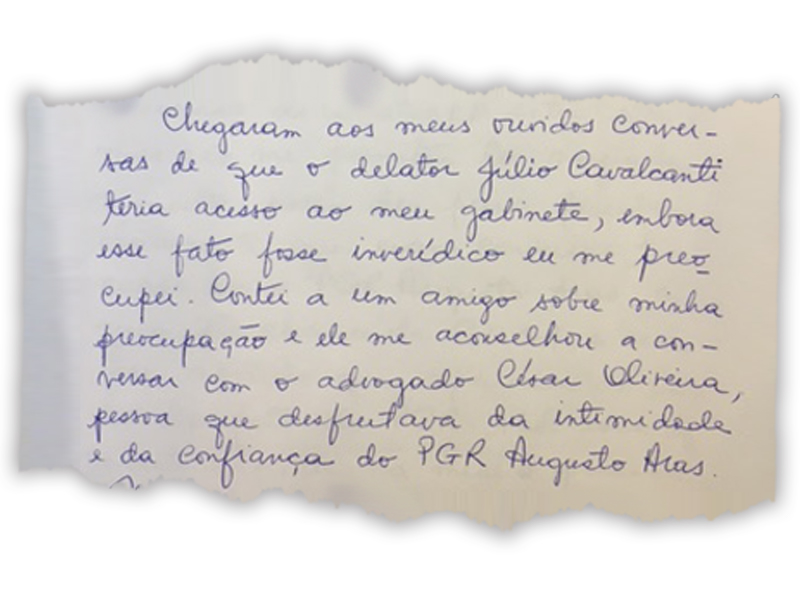 Chegaram aos meus ouvidos conver-
sas de que o delator Júlio Cavalcanti
teria acesso ao meu gabinete, embora
esse fato fosse inverídico eu me preo
cupei. Contei a um amigo sobre minha
preocupação e ele me aconselhou a con-
versar com o advogado César Oliveira,
pessoa que desfrutava da intimidade
e da confiança do PGR Augusto Aras.